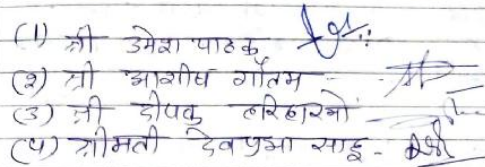 (1) श्री उमेश पाठक
(२) श्री आशीष गौतम -
(3) श्री दीपक हरिहारनो -
(4) श्रीमती देवप्रभा साहू -